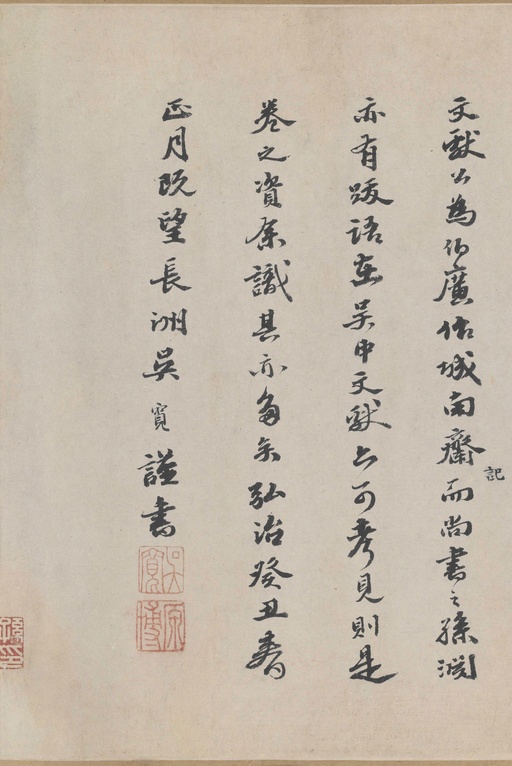 文獻公為伯廣作城南齋記而尚書之孫淵
亦有跋語在吳中文獻可考見則是
卷之資余識其亦多矣弘治癸丑春
正月既望長洲吳寬謹書
吳寬
原博